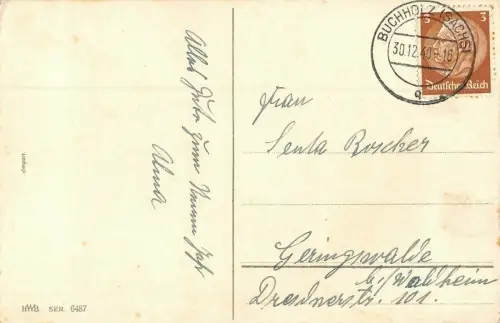 Alles Gute zum Neuen Jahr
Alma
BUCHHOLZ (SACHS)
30.12.40
3 3
Deutsches Reich
Frau
Senta Roscher
Geringswalde
b./Waldheim
Dresdnerstr. 101.
HWB SER. 6487